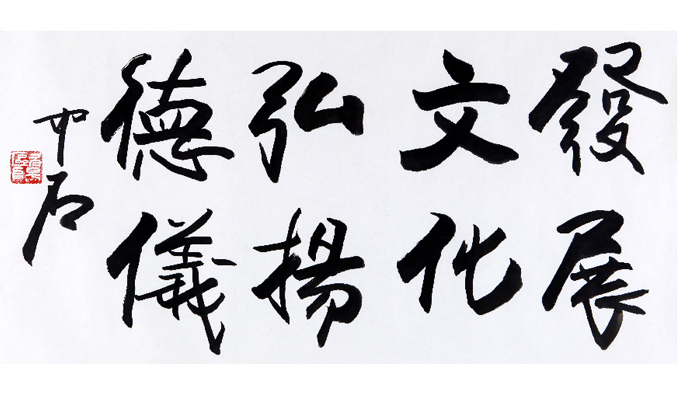 發展
文化
弘揚
德儀
中石